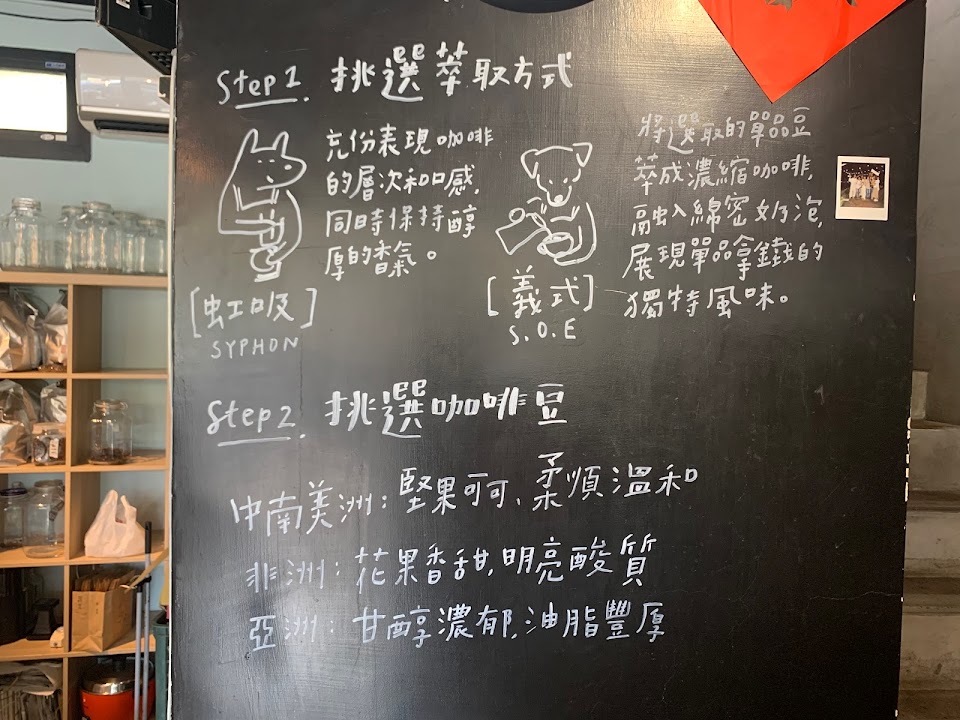 Step1. 挑選萃取方式
充份表現咖啡
的層次和口感,
同時保持醇
厚的香氣。
[虹吸]
SYPHON
將選取的單品豆
萃成濃縮咖啡,
融入綿密奶泡,
展現單品拿鐵的
獨特風味。
[義式]
S.O.E
Step2. 挑選咖啡豆
中南美洲:堅果可可、柔順溫和
非洲:花果香甜,明亮酸質
亞洲:甘醇濃郁,油脂豐厚